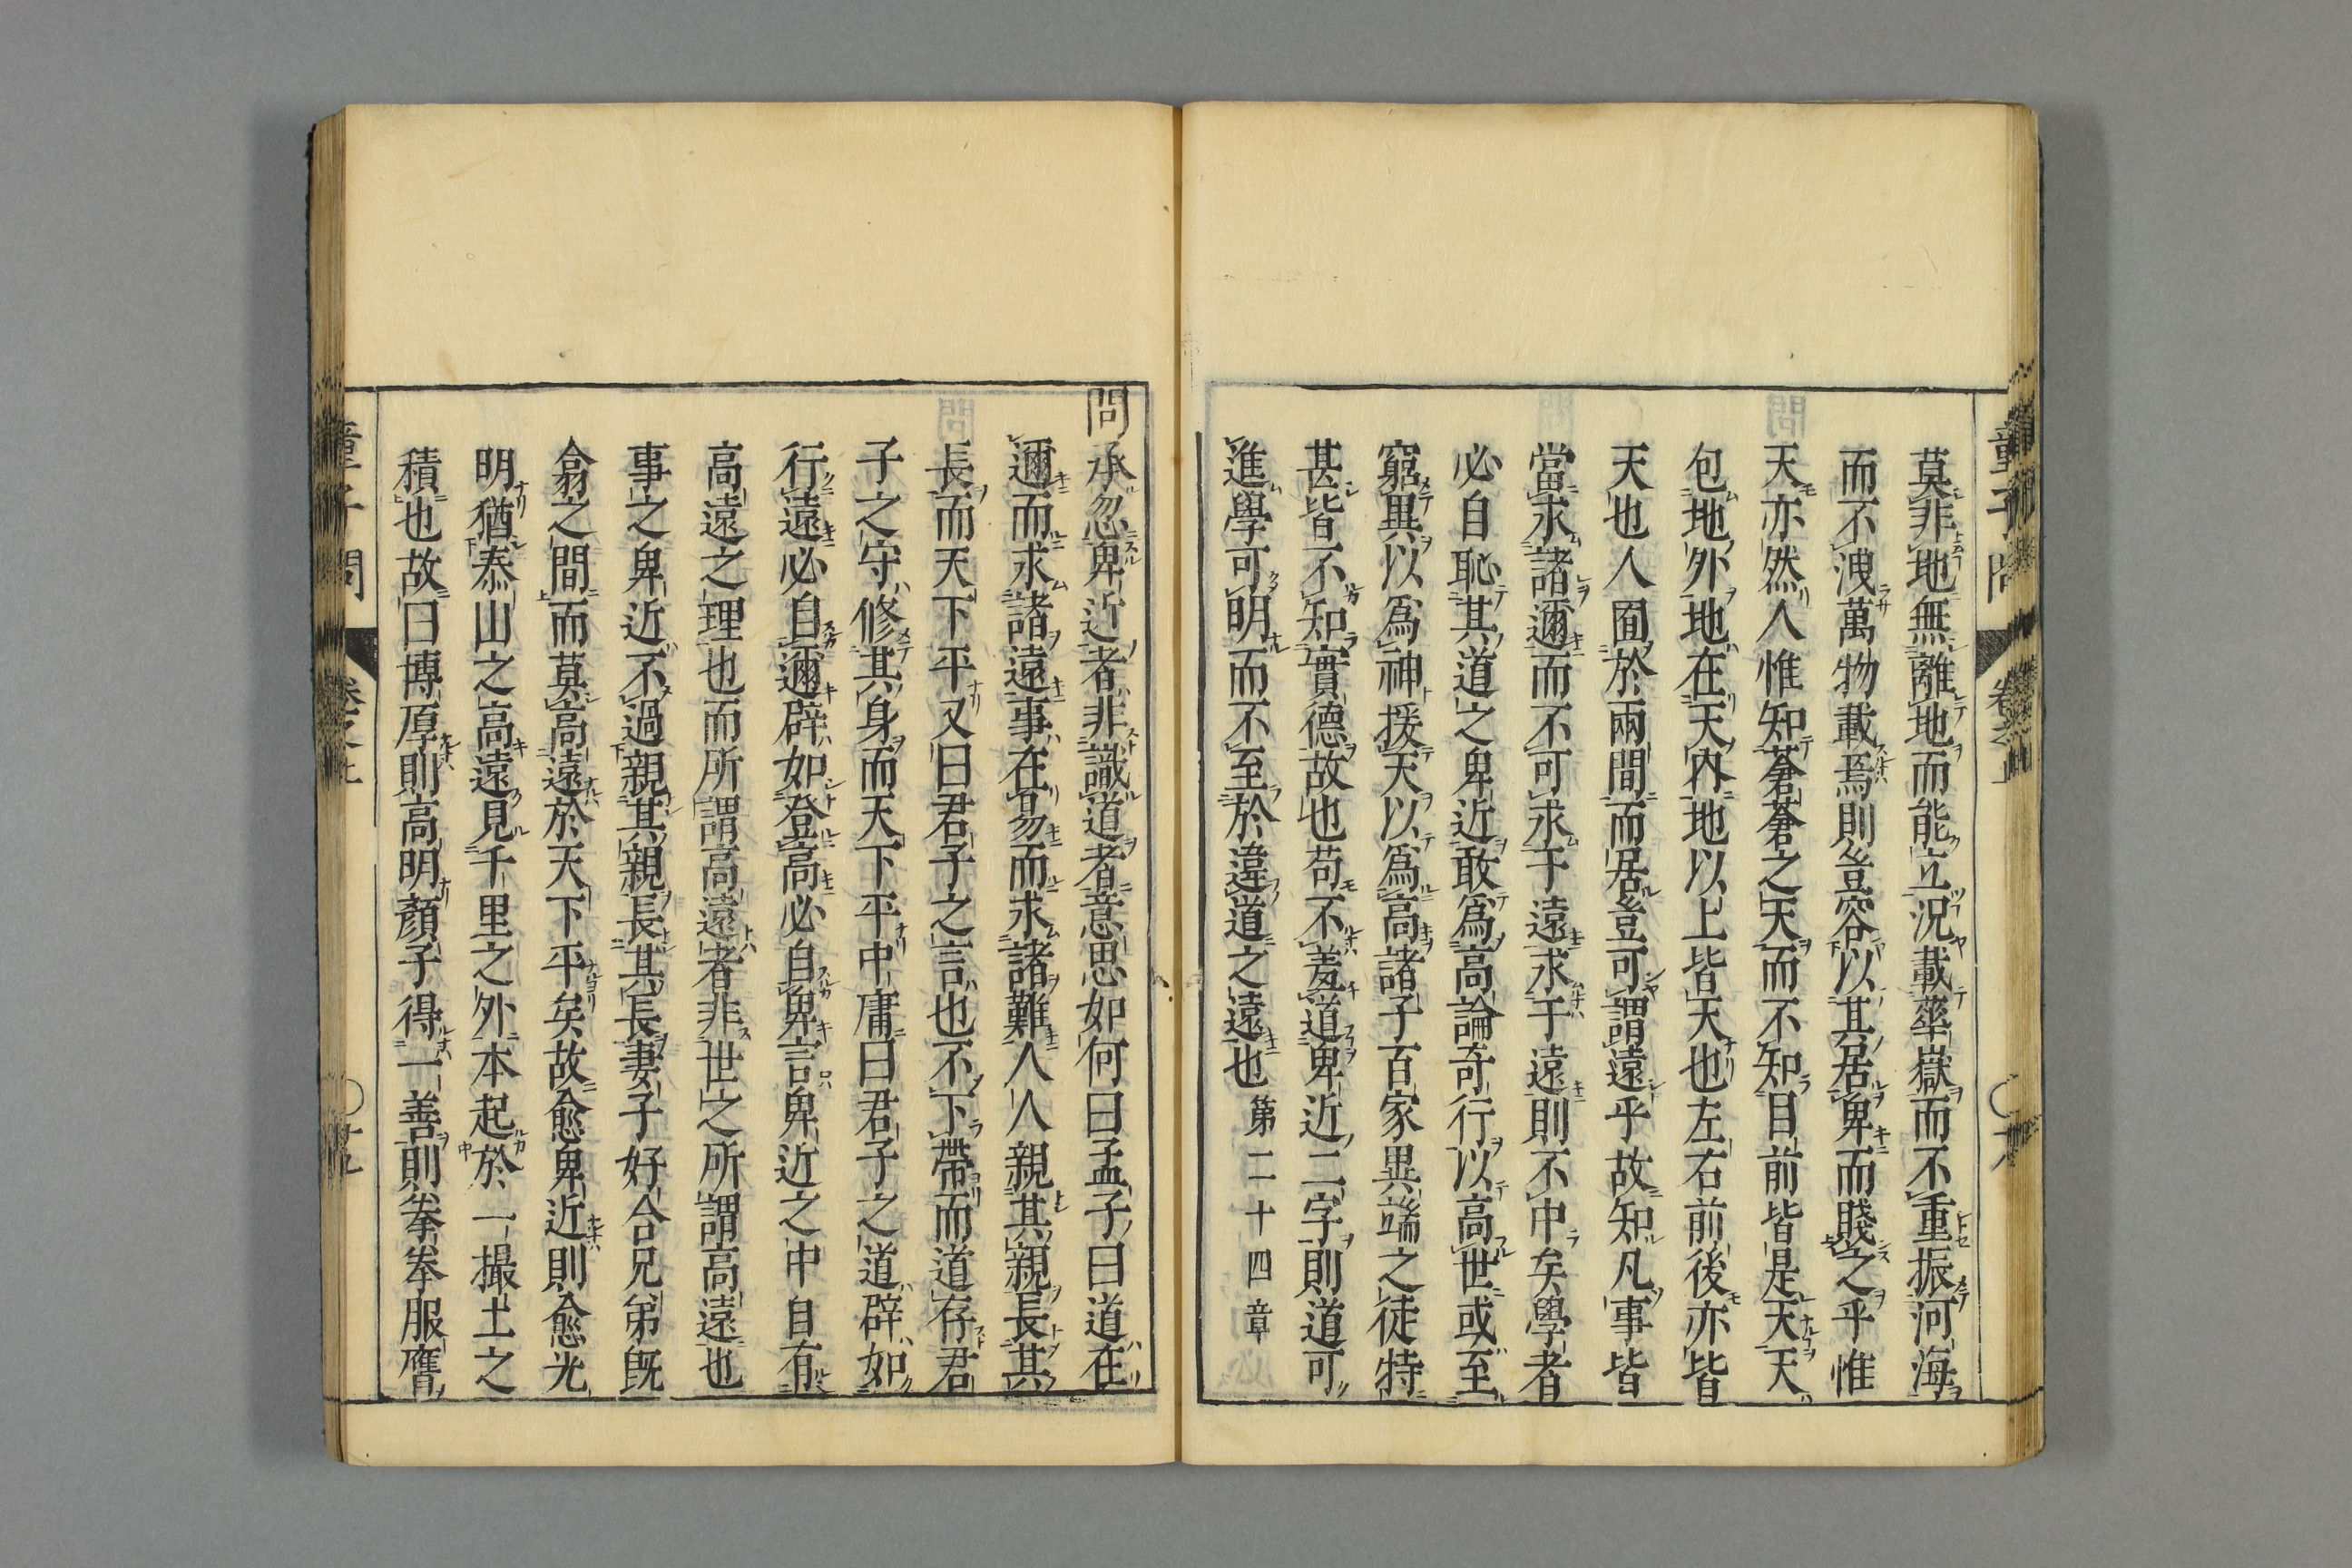 莫非地無離地而能立況載華嶽而不重振河海
而不洩萬物載焉則豈容以其居卑而賤之乎惟
天亦然人惟知蒼蒼之天而不知目前皆是天天
包地外地在天内地以上皆天也左右前後亦皆
天也人囿於兩間而居豈可謂遠乎故知凡事皆
當求諸邇而不可求于遠求于遠則不中矣學者
必自恥其道之卑近敢爲高論奇行以高世或至
窮異以爲神援天以爲高諸子百家異端之徒特
甚皆不知實德故也苟不羞道卑近二字則道可
進學可明而不至於違道之遠也 第二十四章
問承忽卑近者非識道者意思如何曰孟子曰道在
邇而求諸遠事在易而求諸難人人親其親長其
長而天下平又曰君子之言也不下帶而道存君
子之守修其身而天下平中庸曰君子之道辟如
行遠必自邇辟如登高必自卑言卑近之中自有
高遠之理也而所謂高遠者非世之所謂高遠也
事之卑近不過親其親長其長妻子好合兄弟既
翕之間而莫高遠於天下平矣故愈卑近則愈光
明猶泰山之高遠見千里之外本起於一撮土之
積也故曰博厚則高明顏子得一善則拳拳服膺
童子問 卷之上